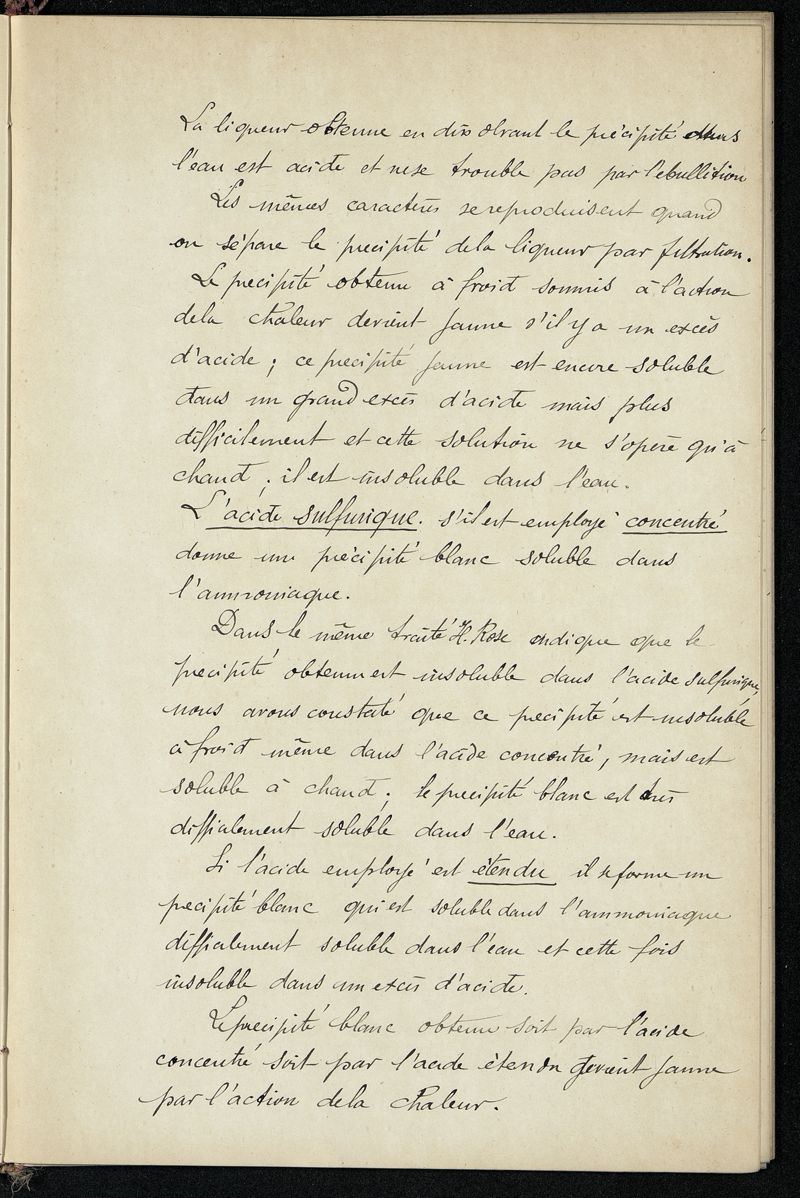 La liqueur obtenue en dissolvant le précipité dans
l'eau est acide et ne se trouble pas par l'ebullition
Les mêmes caractères se reproduisent quand
on sépare le precipité de la liqueur par filtration.
Le precipité obtenu à froid soumis à l'action
de la chaleur devient jaune s'il y a un excès
d'acide ; ce precipité jaune est encore soluble
dans un grand excès d'acide mais plus
difficilement et cette solution ne s'opère qu'à
chaud ; il est insoluble dans l'eau.
L'acide sulfurique. s'il est employé concentré
donne un précipité blanc soluble dans
l'ammoniaque.
Dans le même traité H. Rose indique que le
precipité obtenu est insoluble dans l'acide sulfurique,
nous avons constaté que ce precipité est insoluble
à froid même dans l'acide concentré, mais est
soluble à chaud ; le precipité blanc est très
difficilement soluble dans l'eau.
Si l'acide employé est étendu il se forme un
precipité blanc qui est soluble dans l'ammoniaque
difficilement soluble dans l'eau et cette fois
insoluble dans un excès d'acide.
Le precipité blanc obtenu soit par l'acide
concentré soit par l'acide étendu devient jaune
par l'action de la chaleur.